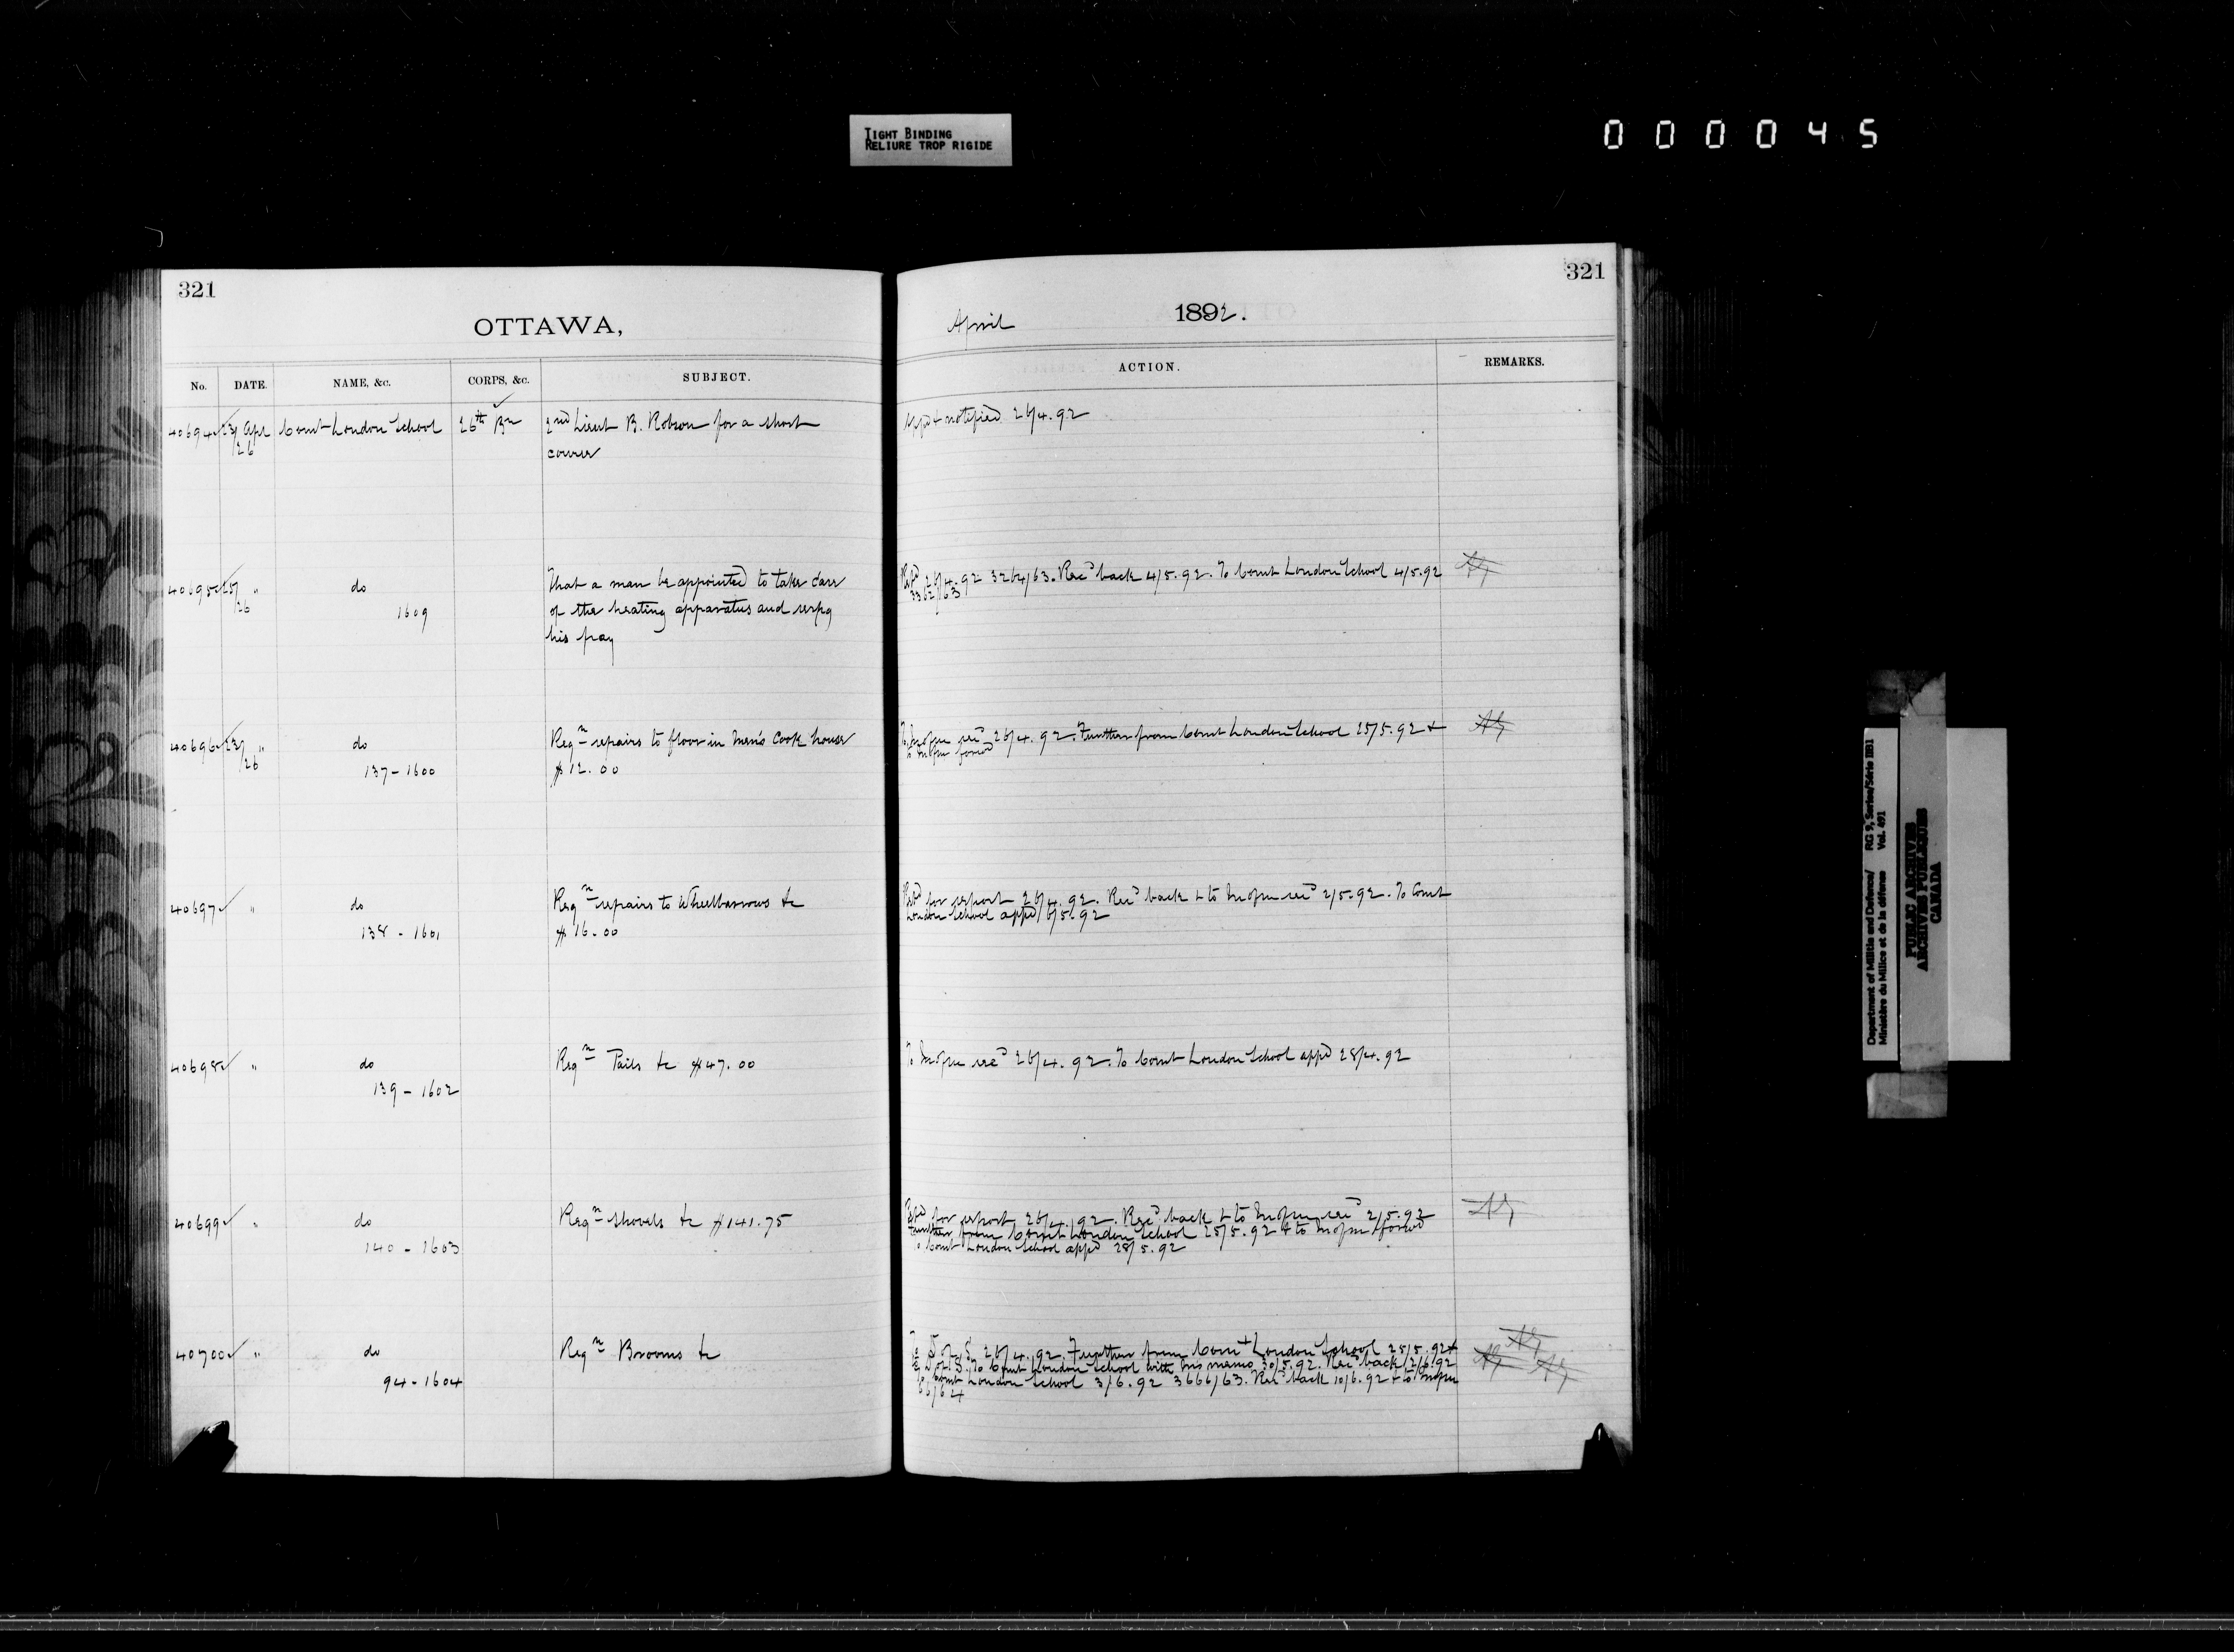 TIGHT BINDING
RELIURE TROP RIGIDE
000045
321
OTTAWA,
No. DATE. NAME, &c. CORPS, &c. SUBJECT.
40694 23/26 Apr Comt London School 26th Bn 2nd Lieut B. Robson for a short
course
40695 25/26 " do That a man be appointed to take care
1609 of the heating apparatus and respg
his pay
40696 23/26 " do Reqn repairs to floor in Men's Cook house
137-1600 $12.00
40697 " do Reqn repairs to Wheelbarrows &c
138-1601 $16.00
40698 " do Reqn Pails &c $47.00
139-1602
40699 " do Reqn Shovels &c $141.75
140-1603
40700 " do Reqn Brooms &c
94-1604
321
April 1892.
ACTION. REMARKS.
Appd & notified 26/4.92
26/4.92 3264/63. Recd back 4/5.92. To Comt London School 4/5.92
3362/63
26/4.92. Further from Comt London School 25/5.92 &
for report 26/4.92. Recd back & to 2/5.92. To Comt
London School appd 6/5.92
To 26/4.92. To Comt London School appd 28/4.92
for report 26/4.92. Recd back & to 2/5.92
Further from Comt London School 25/5.92 & to
To Comt London School appd 28/5.92
To D of S 26/4.92. Further from Comt London School 25/5.92 &
to D of S. To Comt London School with his memo 30/5.92. Recd back 2/6.92
To Comt London School 3/6.92 3666/63. Recd back 10/6.92 & to
66/64
Department of Militia and Defence/ RG 9, Series/Série IIB1
Ministère du Milice et de la défense Vol. 491
PUBLIC ARCHIVES
ARCHIVES PUBLIQUES
CANADA